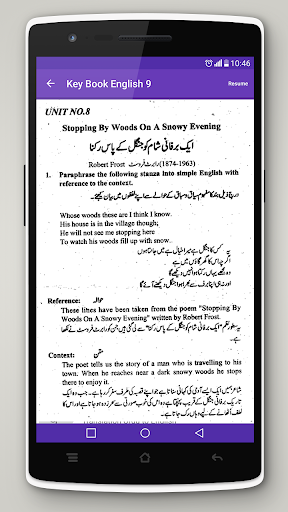 10:46
Key Book English 9
Resume
UNIT NO.8
Stopping By Woods On A Snowy Evening
ایک برفانی شام کو جنگل کے پاس رکنا
Robert Frost رابرٹ فروسٹ (1874-1963)
1. Paraphrase the following stanza into simple English with
reference to the context.
درج ذیل بند کا مفہوم سیاق و سباق کے حوالے سے اپنے لفظوں میں بیان کیجئے۔
Whose woods these are I think I know.
His house is in the village though;
He will not see me stopping here
To watch his woods fill up with snow.
یہ کس کا جنگل ہے میرا خیال ہے میں جانتا ہوں
اگرچہ اس کا گھر گاؤں میں ہے
وہ مجھے یہاں رکتا ہوا نہیں دیکھے گا
Reference: حوالہ
These lines have been taken from the poem "Stopping
By Woods On A Snowy Evening" written by Robert Frost.
Context: متن
The poet tells us the story of a man who is travelling to his
town. When he reaches near a dark snowy woods he stops
there to enjoy it.